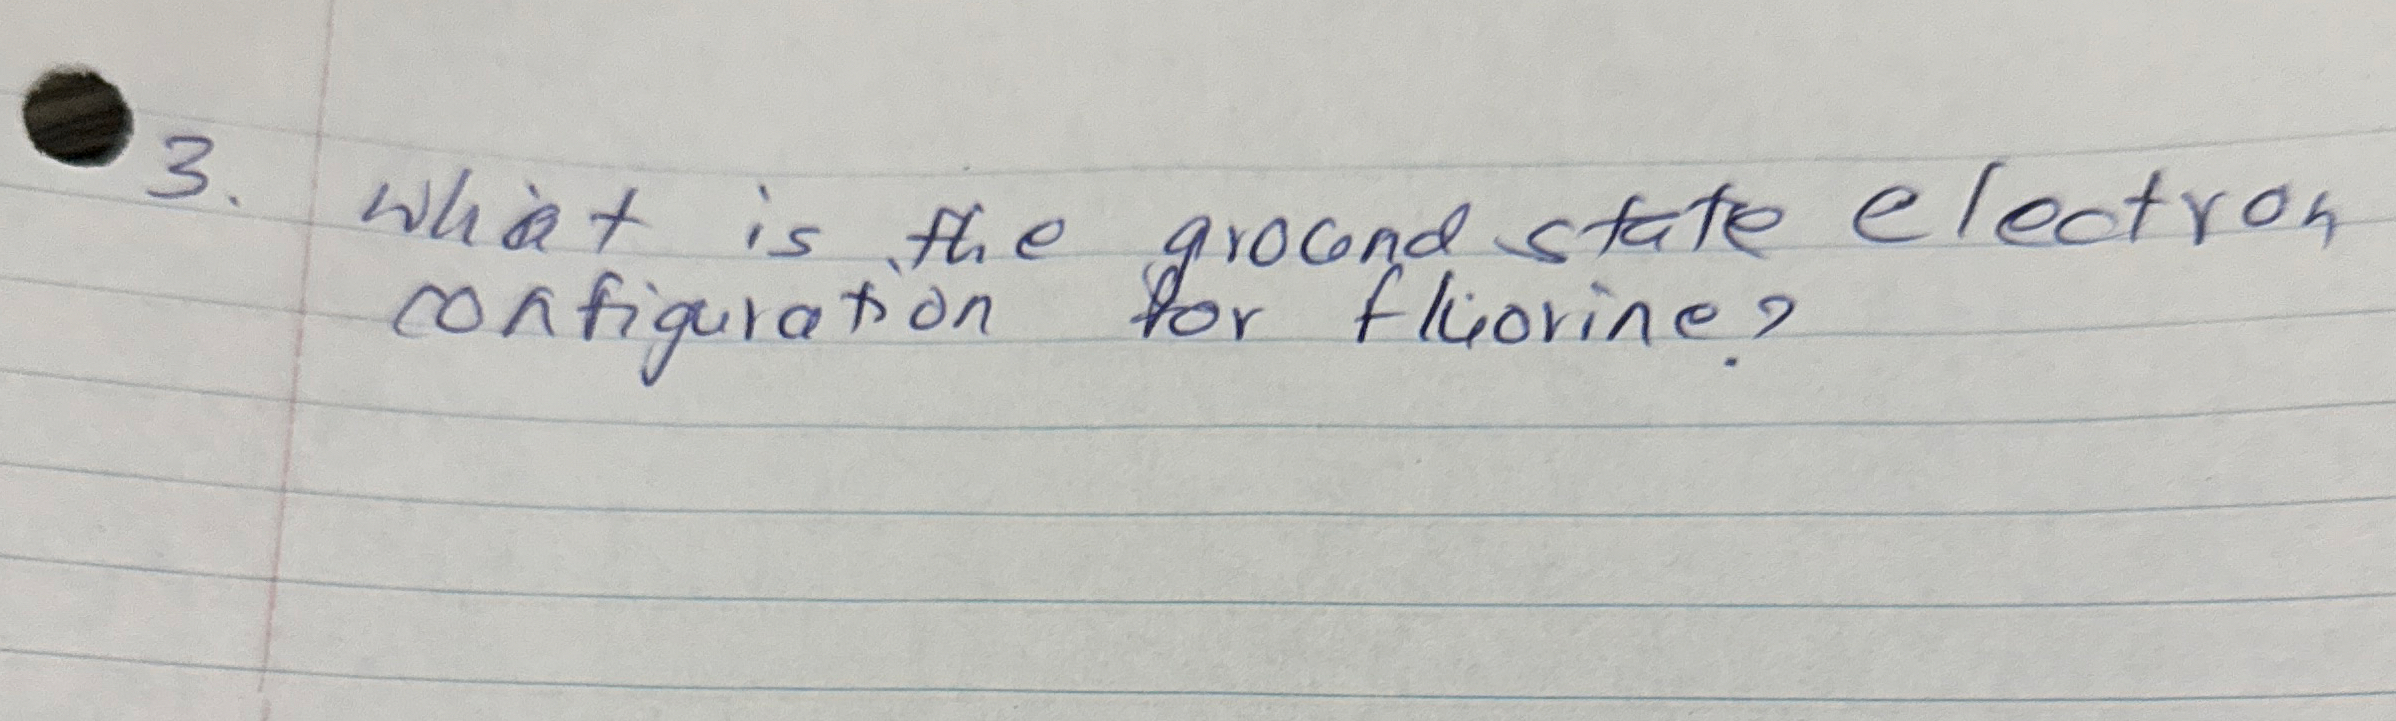 3. What is the ground state electron
configuration for fluorine?